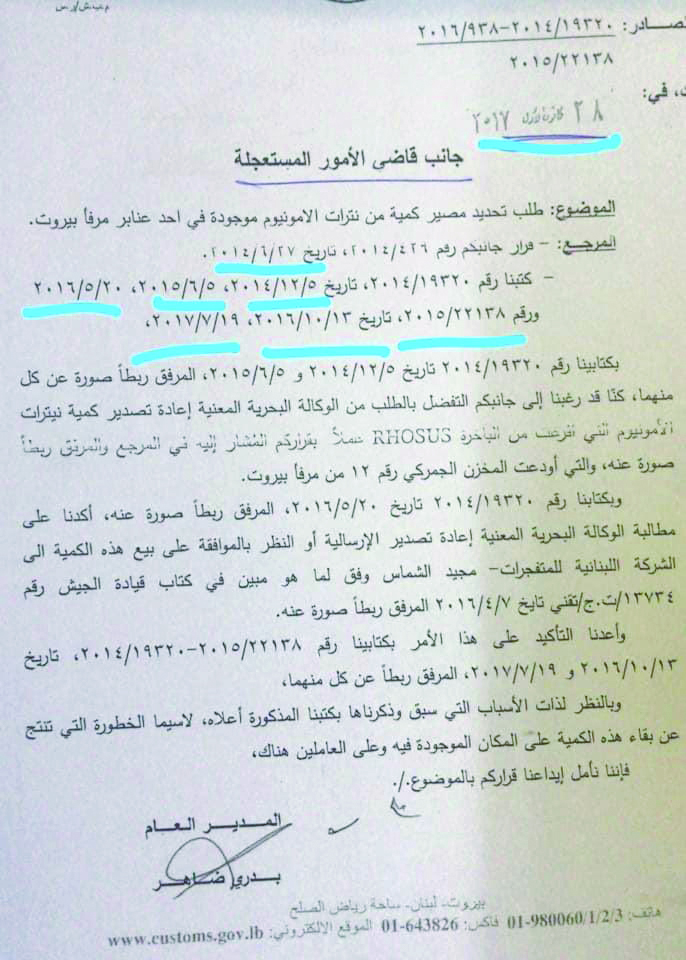 م.ب.ش/ر.س
صـادر: ٢٠١٤/١٩٣٢٠-٢٠١٦/٩٣٨
٢٠١٥/٢٢١٣٨
، في:
٢٨ كانون الأول ٢٠١٧
جانب قاضي الأمور المستعجلة
الموضوع: طلب تحديد مصير كمية من نترات الامونيوم موجودة في احد عنابر مرفأ بيروت.
المرجع: - قرار جانبكم رقم ٢٠١٤/٤٢٦، تاريخ ٢٠١٤/٦/٢٧.
- كتبنا رقم ٢٠١٤/١٩٣٢٠، تاريخ ٢٠١٤/١٢/٥، ٢٠١٥/٦/٥، ٢٠١٦/٥/٢٠
ورقم ٢٠١٥/٢٢١٣٨، تاريخ ٢٠١٦/١٠/١٣، ٢٠١٧/٧/١٩،
بكتابينا رقم ٢٠١٤/١٩٣٢٠ تاريخ ٢٠١٤/١٢/٥ و ٢٠١٥/٦/٥، المرفق ربطاً صورة عن كل
منهما، كنّا قد رغبنا إلى جانبكم التفضل بالطلب من الوكالة البحرية المعنية إعادة تصدير كمية نيترات
الأمونيوم التي افرغت من الباخرة RHOSUS عملاً بقراركم المُشار إليه في المرجع والمرفق ربطاً
صورة عنه، والتي أودعت المخزن الجمركي رقم ١٢ من مرفأ بيروت.
وبكتابنا رقم ٢٠١٤/١٩٣٢٠ تاريخ ٢٠١٦/٥/٢٠، المرفق ربطاً صورة عنه، أكدنا على
مطالبة الوكالة البحرية المعنية إعادة تصدير الإرسالية أو النظر بالموافقة على بيع هذه الكمية الى
الشركة اللبنانية للمتفجرات- مجيد الشماس وفق لما هو مبين في كتاب قيادة الجيش رقم
١٣٧٣٤/ت.ج/تقني تايخ ٢٠١٦/٤/٧ المرفق ربطاً صورة عنه.
وأعدنا التأكيد على هذا الأمر بكتابينا رقم ٢٠١٥/٢٢١٣٨-٢٠١٤/١٩٣٢٠، تاريخ
٢٠١٦/١٠/١٣ و ٢٠١٧/٧/١٩، المرفق ربطاً عن كل منهما،
وبالنظر لذات الأسباب التي سبق وذكرناها بكتبنا المذكورة أعلاه، لاسيما الخطورة التي تنتج
عن بقاء هذه الكمية على المكان الموجودة فيه وعلى العاملين هناك،
فإننا نأمل إيداعنا قراركم بالموضوع./.
المدير العام
بدري ضاهر
بيروت، لبنان- ساحة رياض الصلح
هاتف: 01-980060/1/2/3 فاكس: 01-643826 الموقع الالكتروني: www.customs.gov.lb